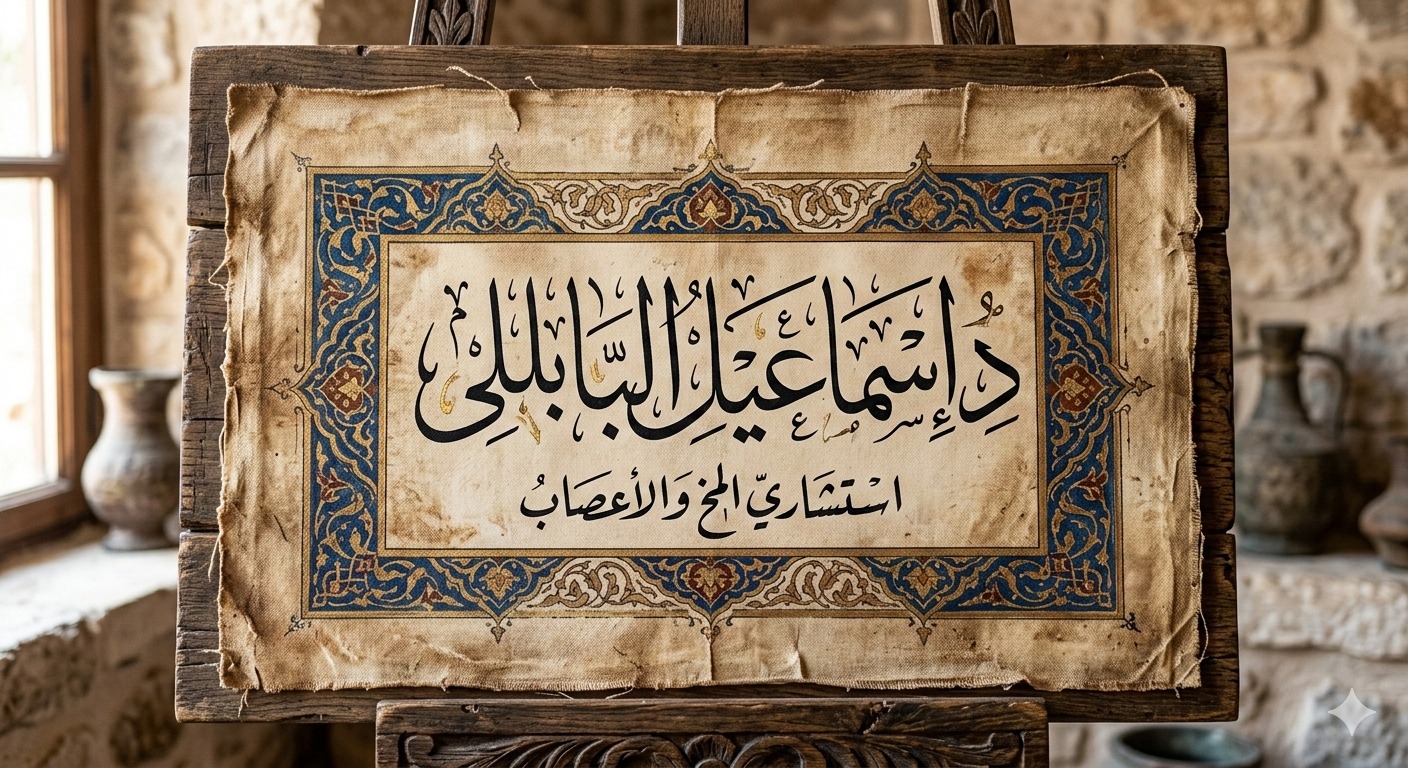 دِ إِسْمَاعَيْلِ اُلبَّابللِى
اسْتشَاريّ المخ وَالأعصَابُ